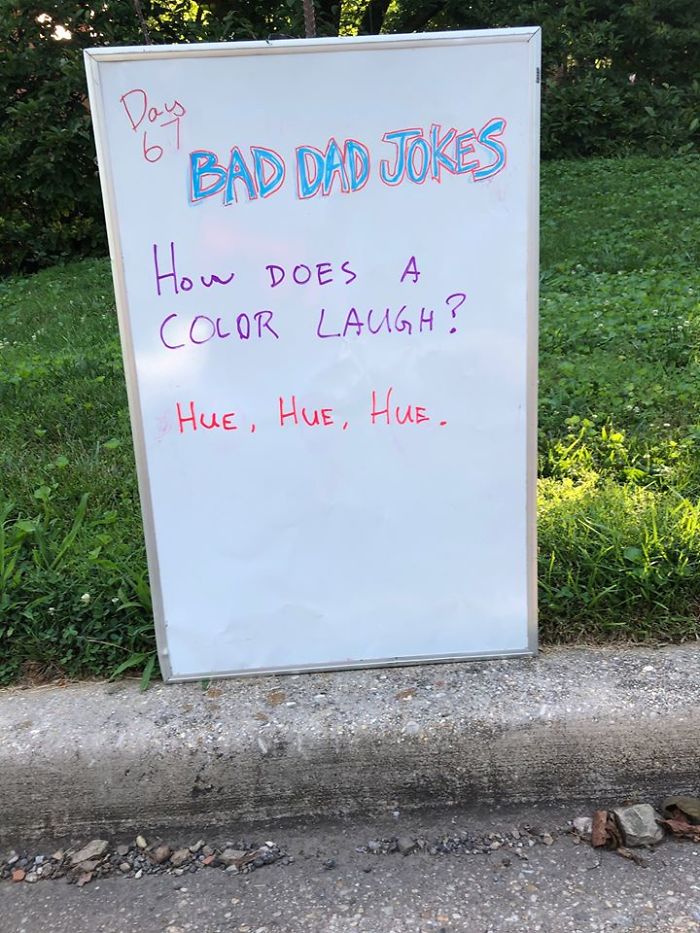 Day
67
BAD DAD JOKES
How DOES A
COLOR LAUGH?
HUE, HUE, HUE.